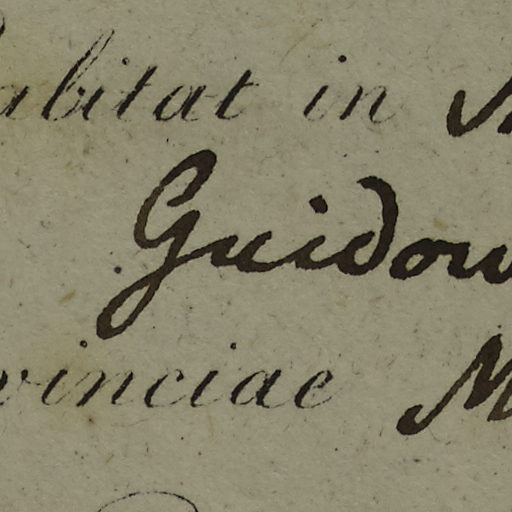 abitat in
Guidow
vinciae M